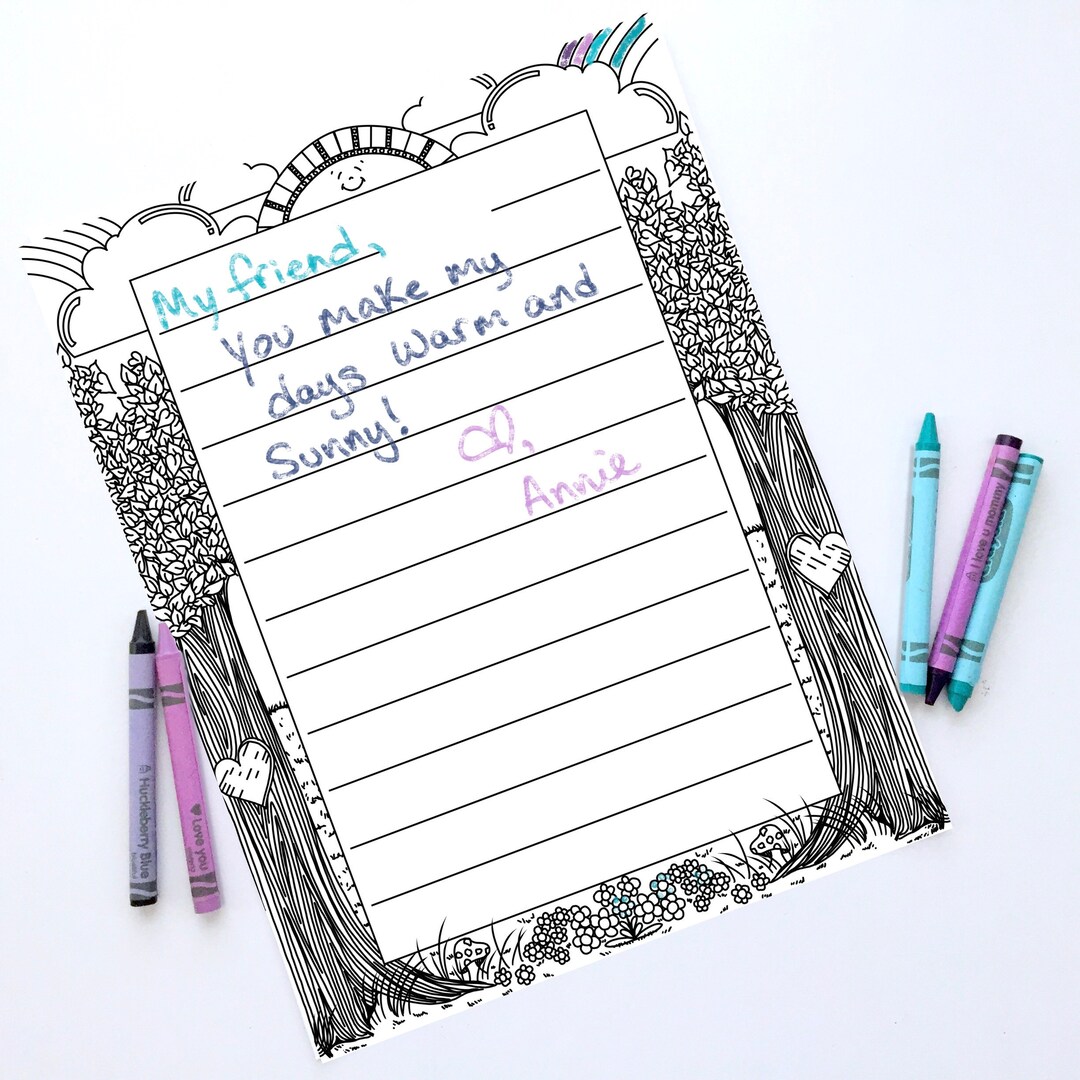 My friend,
You make my
days warm and
Sunny!
♡,
Annie
Huckleberry Blue
♥ Love you
I love u mommy